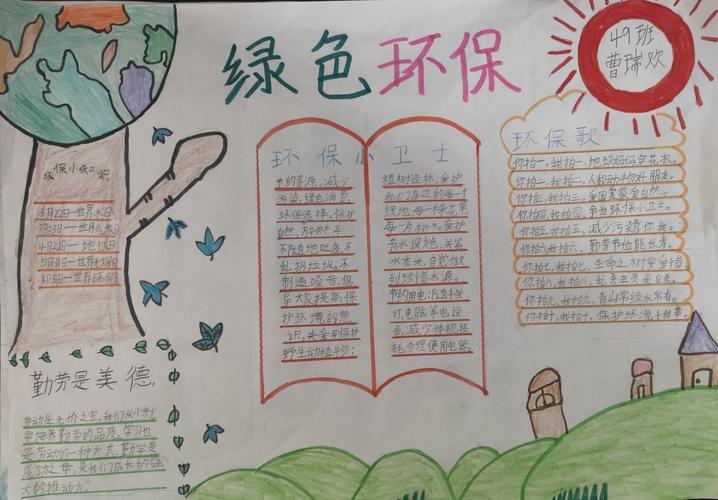 绿色环保
49班
曹瑞欢
环保小知识
3月22日一世界水日
3月23日一世界气象日
4月22日一地球日
5月31日一世界无烟日
环保小卫士
节约资源,减少
污染,绿色消费,
环保选择,保护
自然,万物共生
不随地吐痰,不
乱扔垃圾,不
制造噪音,倡
导大家提高保
护环境的意
识,关爱与保护
野生动植物;
植树造林,爱护
我们身边的每一寸
绿地,每一株花草
每一方树木,爱护
节水设施,关紧
水龙头,自觉做
到珍惜水源。
节约用电:随手关
灯,电脑等电设
备,减少待机损
耗,合理使用电器,
环保歌
你拍一,我拍一,地球妈妈穿花衣。
你拍二,我拍二,人和动物好朋友。
你拍三,我拍三,爱国爱家爱自然。
你拍四,我拍四,争当环保小卫士。
你拍五,我拍五,减少污染靠你我。
你拍六,我拍六,勤劳节俭能长寿。
你拍七,我拍七,生命之树要爱惜
你拍八,我拍八,乱杀生灵是自杀。
你拍九,我拍九,青山绿水常有。
你拍十,我拍十,保护环境
勤劳是美德,
劳动是无价之宝,我们从小就
要培养勤劳的品质,学习也
是劳动的一种方式,勤学是
成功之母,是我们成长的强
大的推动力。